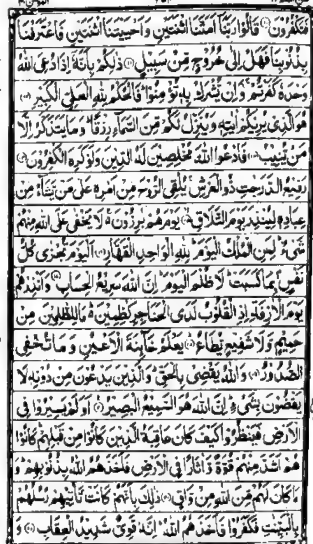 فَتَكْفُرُوْنَ ۝ قَالُوْا رَبَّنَاۤ اَمَتَّنَا اثْنَتَيْنِ وَاَحْيَيْتَنَا اثْنَتَيْنِ فَاعْتَرَفْنَا
بِذُنُوْبِنَا فَهَلْ اِلٰى خُرُوْجٍ مِّنْ سَبِيْلٍ ۝ ذٰلِكُمْ بِاَنَّهٗۤ اِذَا دُعِيَ اللّٰهُ
وَحْدَهٗ كَفَرْتُمْ ۚ وَاِنْ يُّشْرَكْ بِهٖ تُؤْمِنُوْا ؕ فَالْحُكْمُ لِلّٰهِ الْعَلِيِّ الْكَبِيْرِ ۝
هُوَ الَّذِيْ يُرِيْكُمْ اٰيٰتِهٖ وَيُنَزِّلُ لَكُمْ مِّنَ السَّمَآءِ رِزْقًا ؕ وَمَا يَتَذَكَّرُ اِلَّا
مَنْ يُّنِيْبُ ۝ فَادْعُوا اللّٰهَ مُخْلِصِيْنَ لَهُ الدِّيْنَ وَلَوْ كَرِهَ الْكٰفِرُوْنَ ۝
رَفِيْعُ الدَّرَجٰتِ ذُو الْعَرْشِ ۚ يُلْقِي الرُّوْحَ مِنْ اَمْرِهٖ عَلٰى مَنْ يَّشَآءُ مِنْ
عِبَادِهٖ لِيُنْذِرَ يَوْمَ التَّلَاقِ ۝ يَوْمَ هُمْ بٰرِزُوْنَ ۚ لَا يَخْفٰى عَلَى اللّٰهِ مِنْهُمْ
شَيْءٌ ؕ لِمَنِ الْمُلْكُ الْيَوْمَ ؕ لِلّٰهِ الْوَاحِدِ الْقَهَّارِ ۝ اَلْيَوْمَ تُجْزٰى كُلُّ
نَفْسٍۭ بِمَا كَسَبَتْ ؕ لَا ظُلْمَ الْيَوْمَ ؕ اِنَّ اللّٰهَ سَرِيْعُ الْحِسَابِ ۝ وَاَنْذِرْهُمْ
يَوْمَ الْاٰزِفَةِ اِذِ الْقُلُوْبُ لَدَى الْحَنَاجِرِ كٰظِمِيْنَ ؕ مَا لِلظّٰلِمِيْنَ مِنْ
حَمِيْمٍ وَّلَا شَفِيْعٍ يُّطَاعُ ۝ يَعْلَمُ خَآئِنَةَ الْاَعْيُنِ وَمَا تُخْفِي
الصُّدُوْرُ ۝ وَاللّٰهُ يَقْضِيْ بِالْحَقِّ ؕ وَالَّذِيْنَ يَدْعُوْنَ مِنْ دُوْنِهٖ لَا
يَقْضُوْنَ بِشَيْءٍ ؕ اِنَّ اللّٰهَ هُوَ السَّمِيْعُ الْبَصِيْرُ ۝ اَوَلَمْ يَسِيْرُوْا فِي
الْاَرْضِ فَيَنْظُرُوْا كَيْفَ كَانَ عَاقِبَةُ الَّذِيْنَ كَانُوْا مِنْ قَبْلِهِمْ ؕ كَانُوْا
هُمْ اَشَدَّ مِنْهُمْ قُوَّةً وَّاٰثَارًا فِي الْاَرْضِ فَاَخَذَهُمُ اللّٰهُ بِذُنُوْبِهِمْ ؕ وَ
مَا كَانَ لَهُمْ مِّنَ اللّٰهِ مِنْ وَّاقٍ ۝ ذٰلِكَ بِاَنَّهُمْ كَانَتْ تَّاْتِيْهِمْ رُسُلُهُمْ
بِالْبَيِّنٰتِ فَكَفَرُوْا فَاَخَذَهُمُ اللّٰهُ ؕ اِنَّهٗ قَوِيٌّ شَدِيْدُ الْعِقَابِ ۝ وَ